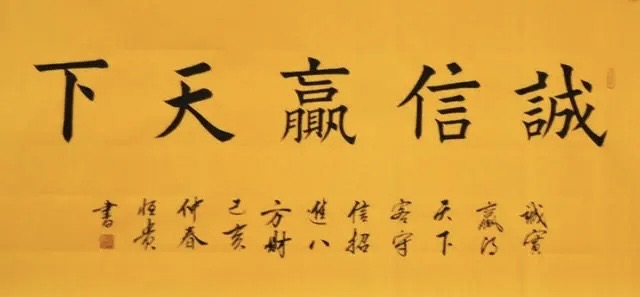 誠信贏天下
誠實
贏得
天下
客守
信招
進八
方財
己亥
仲春
恒貴
書